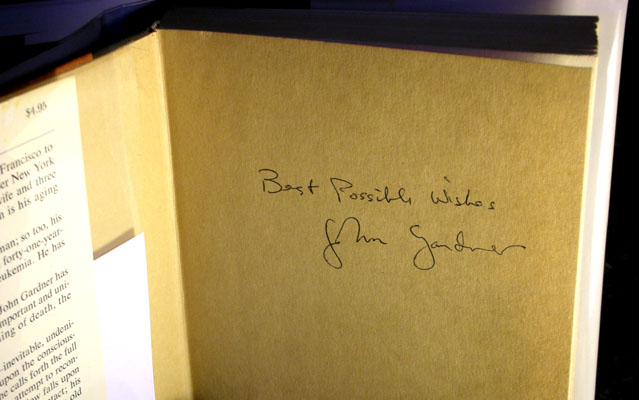 $4.95
Francisco to
er New York
wife and three
n is his aging
man; so too, his
forty-one-year-
eukemia. He has
John Gardner has
important and uni-
ing of death, the
inevitable, undeni-
upon the conscious-
ne calls forth the full
attempt to recon-
ow falls upon
ntact; his
old
Best Possible Wishes
John Gardner